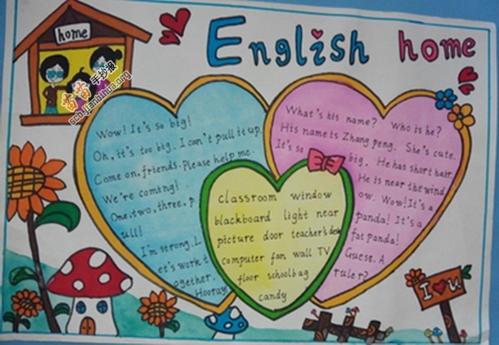 home
English home
Wow! It's so big!
Oh, it's too big. I can't pull it up.
Come on, friends. Please help me.
We're coming!
One, two, three, p
ull!
I'm strong. L
et's work t
ogether.
Hooray
classroom window
blackboard light near
picture door teacher's desk
computer fan wall TV
floor schoolbag
candy
What's his name? Who is he?
His name is Zhang peng. She's cute.
It's so big. He has short hair.
He is near the wind
ow. Wow! It's a
panda! It's a
fat panda!
Guess. A
ruler?
I u